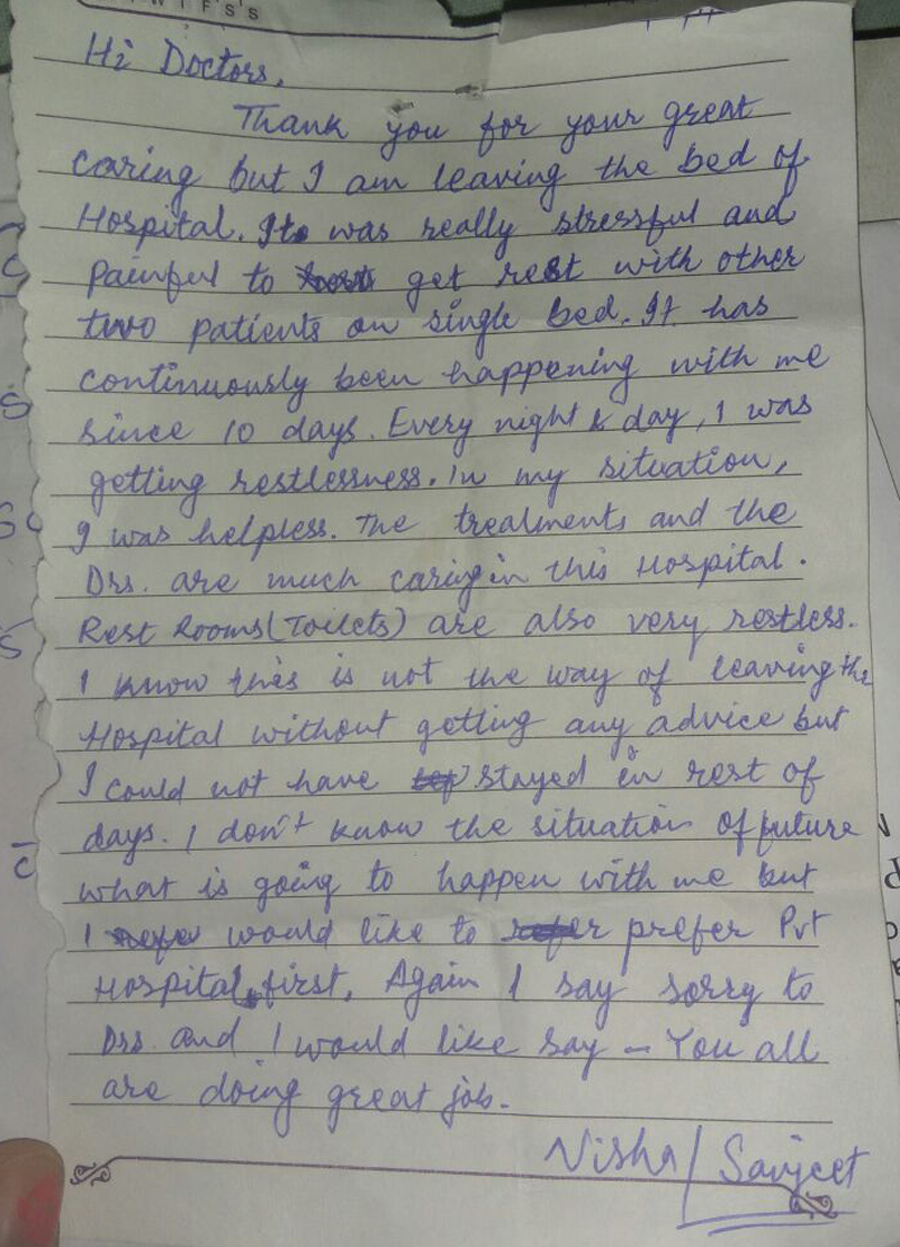 WIFS'S
Hi Doctors,
Thank you for your great
caring but I am leaving the bed of
Hospital. It was really stressful and
Painful to get rest with other
two patients on single bed. It has
continuously been happening with me
since 10 days. Every night & day, I was
getting restlessness. In my situation,
I was helpless. The treatments and the
Drs. are much caring in this Hospital.
Rest Rooms (Toilets) are also very restless.
I know this is not the way of leaving the
Hospital without getting any advice but
I could not have stayed in rest of
days. I don't know the situation of future
what is going to happen with me but
I would like to prefer Pvt
Hospital first. Again I say sorry to
Drs and I would like say – You all
are doing great job.
Nisha/